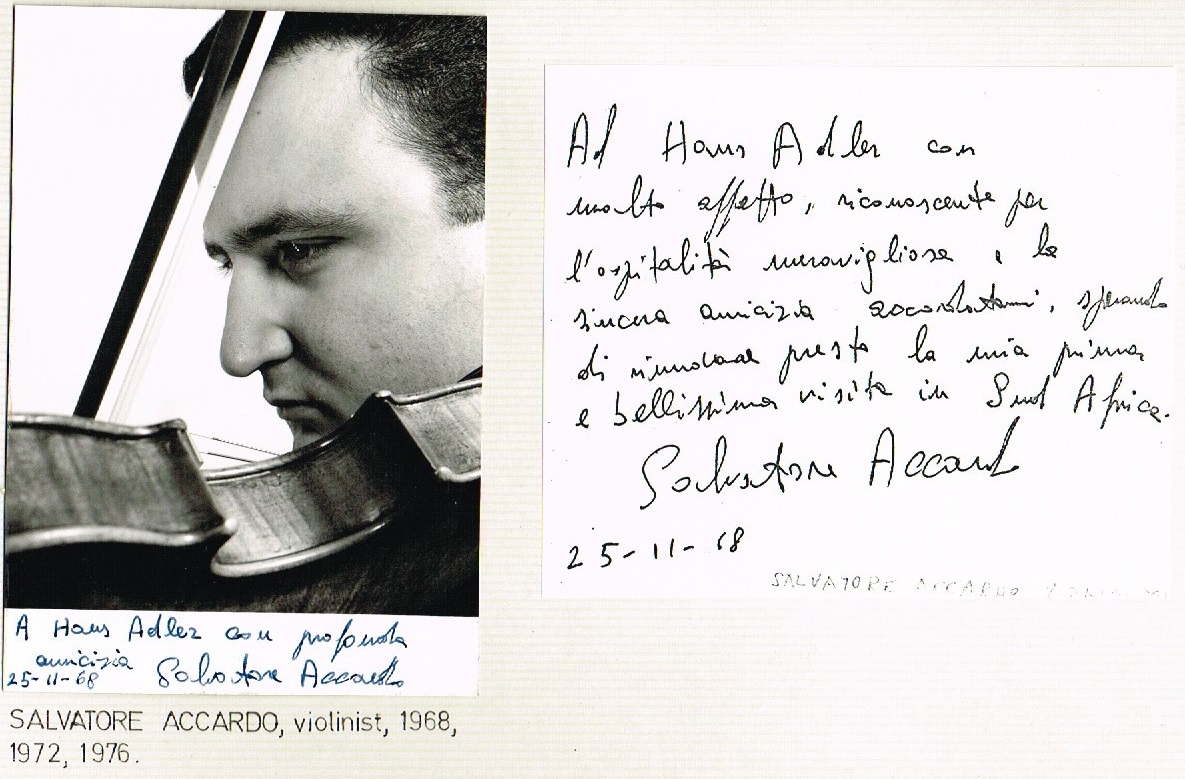 A Hans Adler con profonda
amicizia Salvatore Accardo
25-11-68
SALVATORE ACCARDO, violinist, 1968,
1972, 1976.
Ad Hans Adler con
molto affetto, riconoscente per
l'ospitalità meravigliosa e la
sincera amicizia accordatami, sperando
di rinnovare presto la mia prima
e bellissima visita in Sud Africa.
Salvatore Accardo
25-11-68
SALVATORE ACCARDO